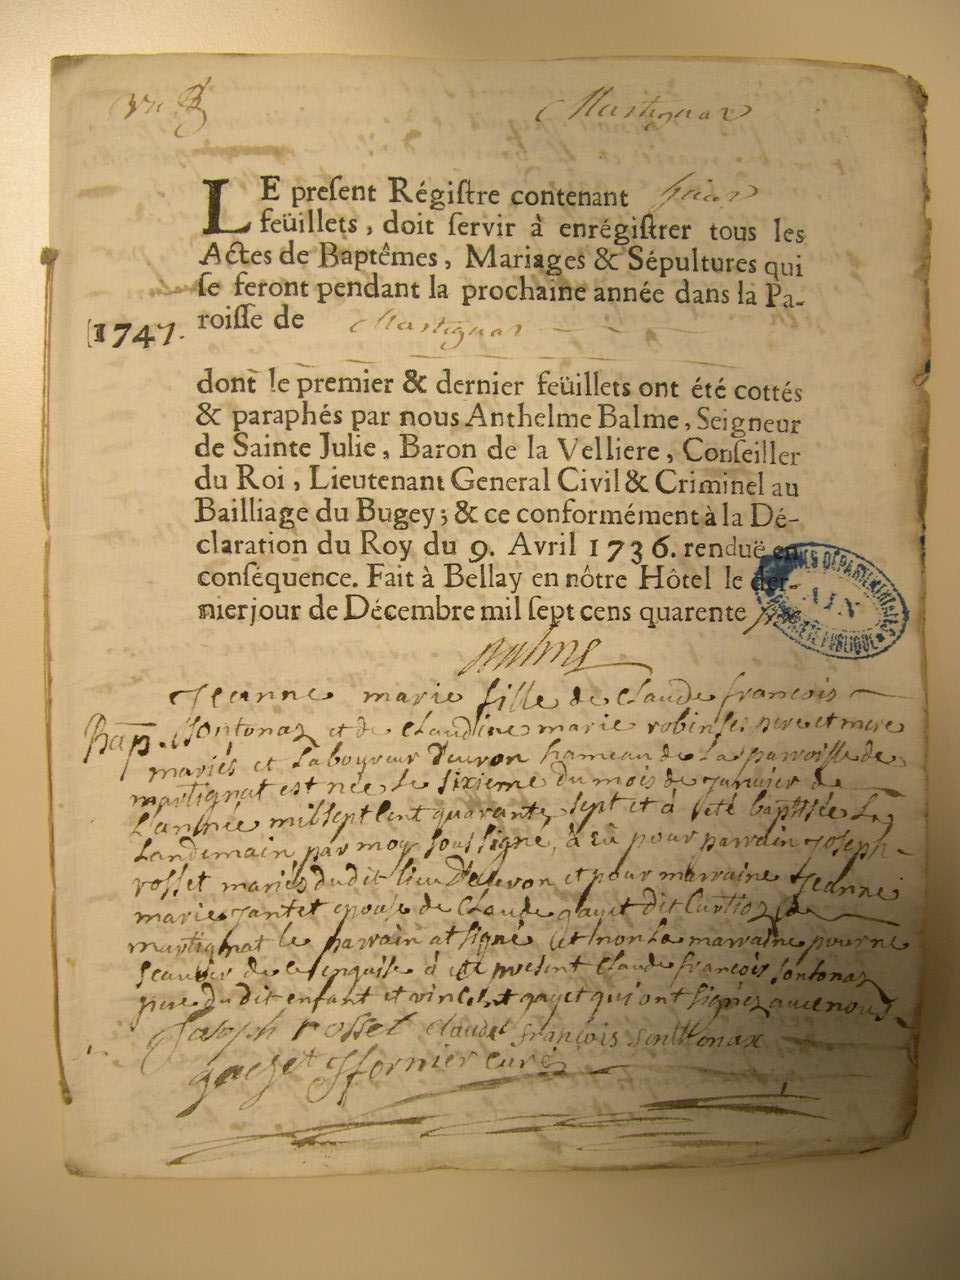 Martignat
LE preſent Régiſtre contenant
feüillets, doit ſervir à enrégiſtrer tous les
Actes de Baptêmes, Mariages & Sépultures qui
ſe feront pendant la prochaine année dans la Pa-
roiſſe de Martignat
1747.
dont le premier & dernier feüillets ont été cottés
& paraphés par nous Anthelme Balme, Seigneur
de Sainte Julie, Baron de la Velliere, Conſeiller
du Roi, Lieutenant General Civil & Criminel au
Bailliage du Bugey; & ce conformément à la Dé-
claration du Roy du 9. Avril 1736. renduë en
conſéquence. Fait à Bellay en nôtre Hôtel le der-
nier jour de Décembre mil ſept cens quarente
ARCHIVES DÉPARTEMENTALES
AIN
PROPRIÉTÉ PUBLIQUE
Balme
Jeanne marie fille de Claude francois
Bap. Sontonaz et de Claudine marie robin ses pere et mere
mariés et Laboureur Deuron hameau de La parroisse de
martignat est née Le sixieme du mois de Janvier de
L'année mil sept Cent quarante sept et à été baptisée Le
Landemain par moy soussigné, à eü pour parrain Joseph
rosset mariés du dit lieu Deuron et pour marraine Jeanne
marie Jantet epouse de Claude gayet dit Curtioz de
martignat le parrain at signé et non La marraine pour ne
scavoir de ce enquise à été present Claude françois sontonaz
pere du dit enfant et vincent gayet qui ont signez avec nous
Joseph rosset Claude françois sontthonax
gayet Jfornier curé